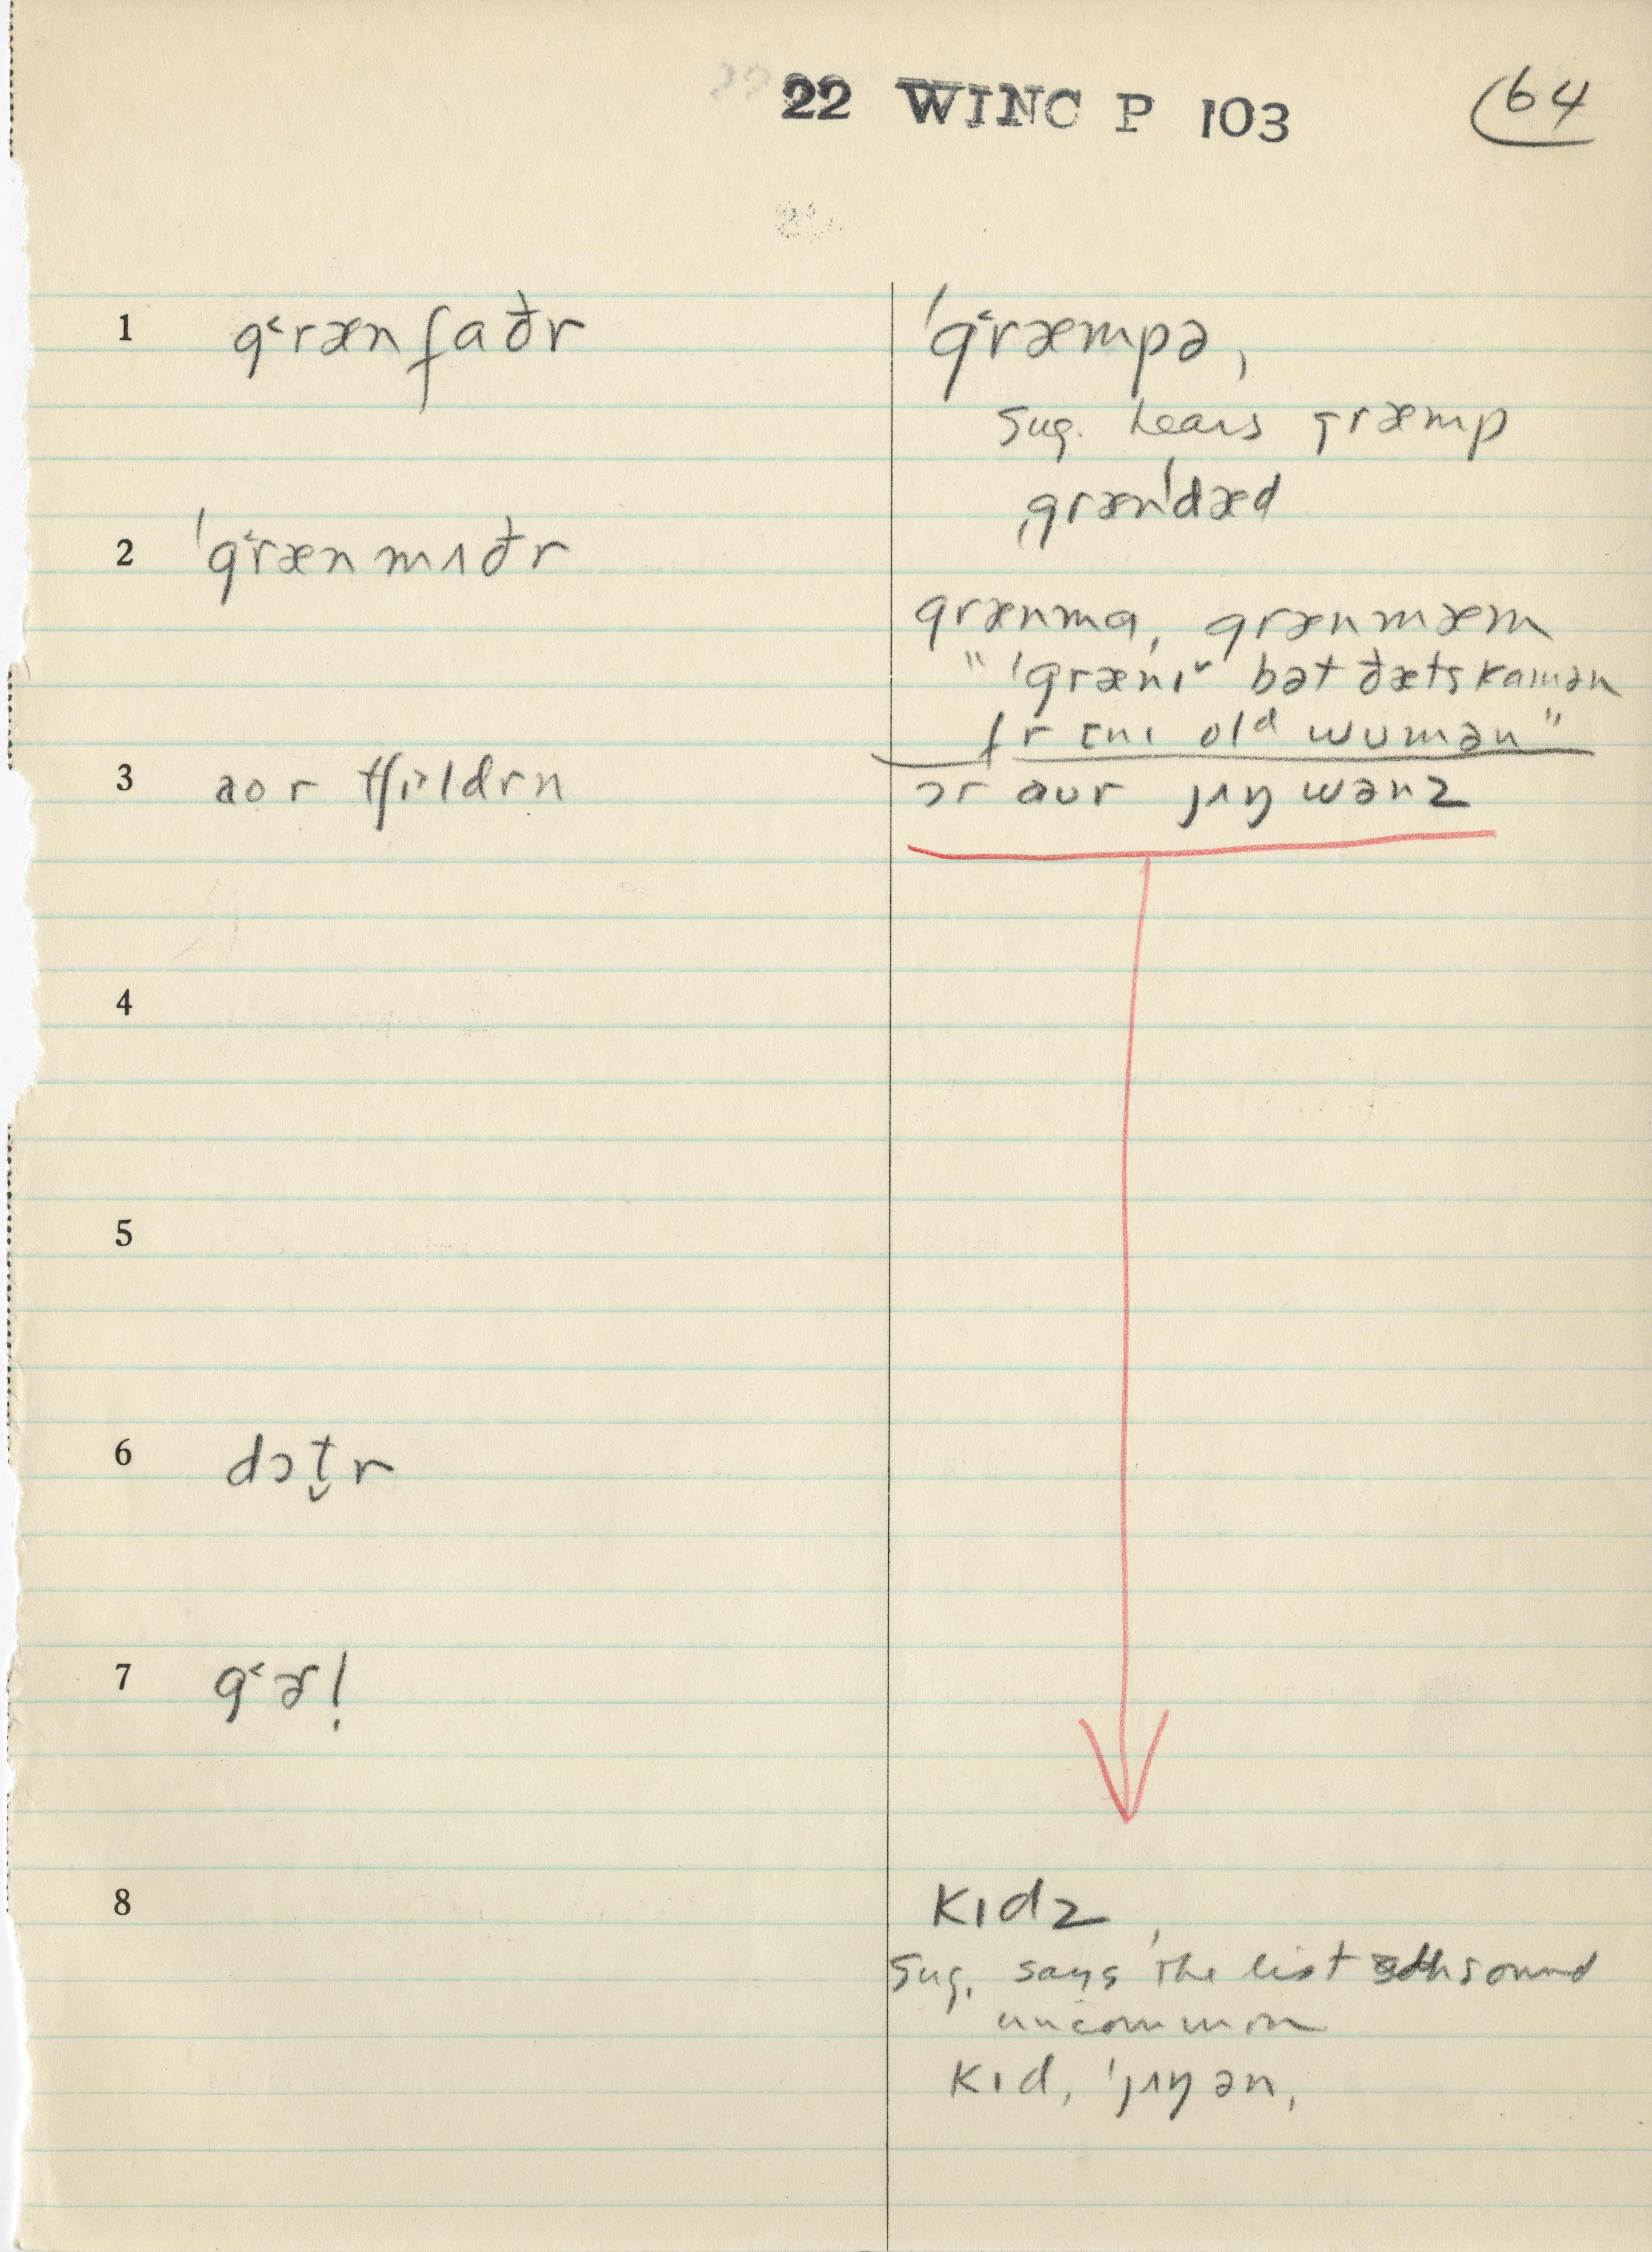 22 WINC P 103
64
1 g˂rænfaðr
ˈg˂ræmpə,
Sug. hears græmp
ˌgrænˈdæd
2 ˈg˂rænmʌðr
grænma, grænmæm
"ˈgrænɪ˅ bət ðæts kamən
fr ɛnɪ old wumən"
3 aor tʃɪ˃ldrn
ɔr aur jʌŋ wənz
4
5
6 dɔt̬r
7 g˂ɚl̩
8
kɪdz,
Sug. says the list sound
uncommon
kɪd, ˈjʌŋ ən,